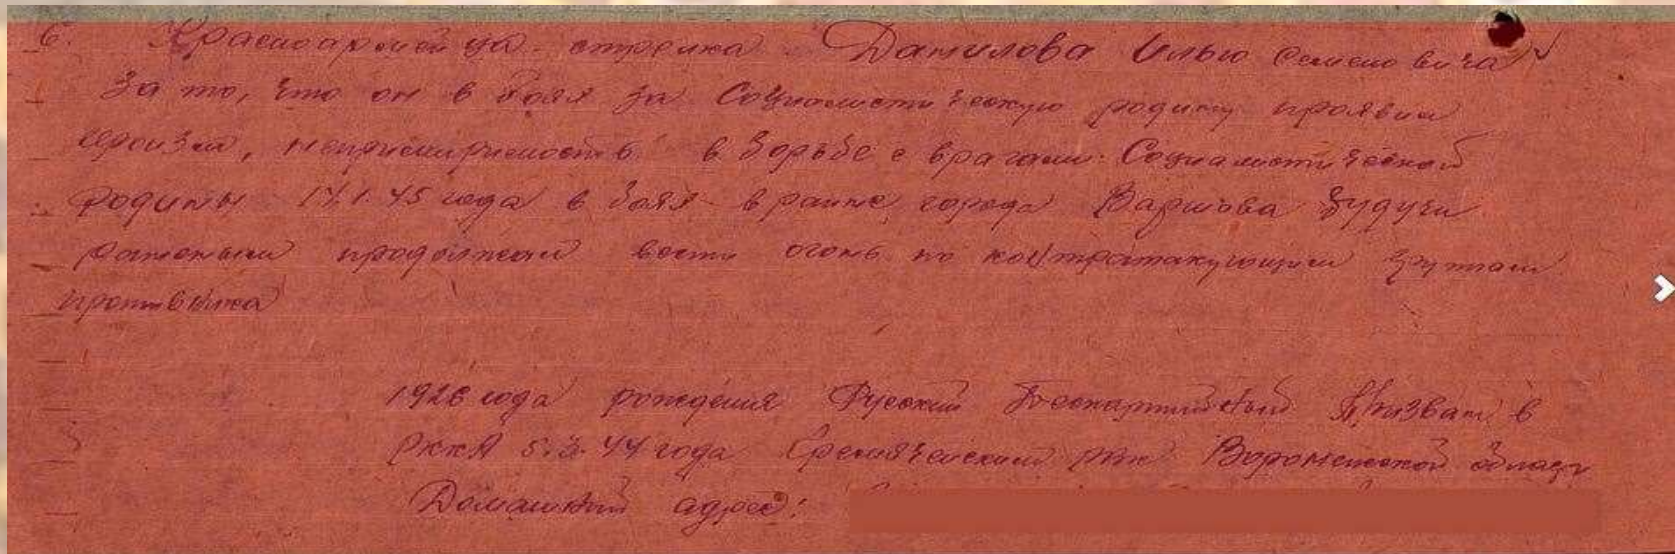 6. Красноармейца-стрелка Данилова Илью Семеновича
За то, что он в боях за Социалистическую родину проявил
героизм, в борьбе с врагами Социалистической
родины 17.1.45 года в боях в раине города Варшава будучи
раненым продолжал вести огонь по контратакующим группам
противника
1926 года рождения Русский Беспартийный Призван в
РККА 5.3.44 года рвк Воронежской област
Домашний адрес: